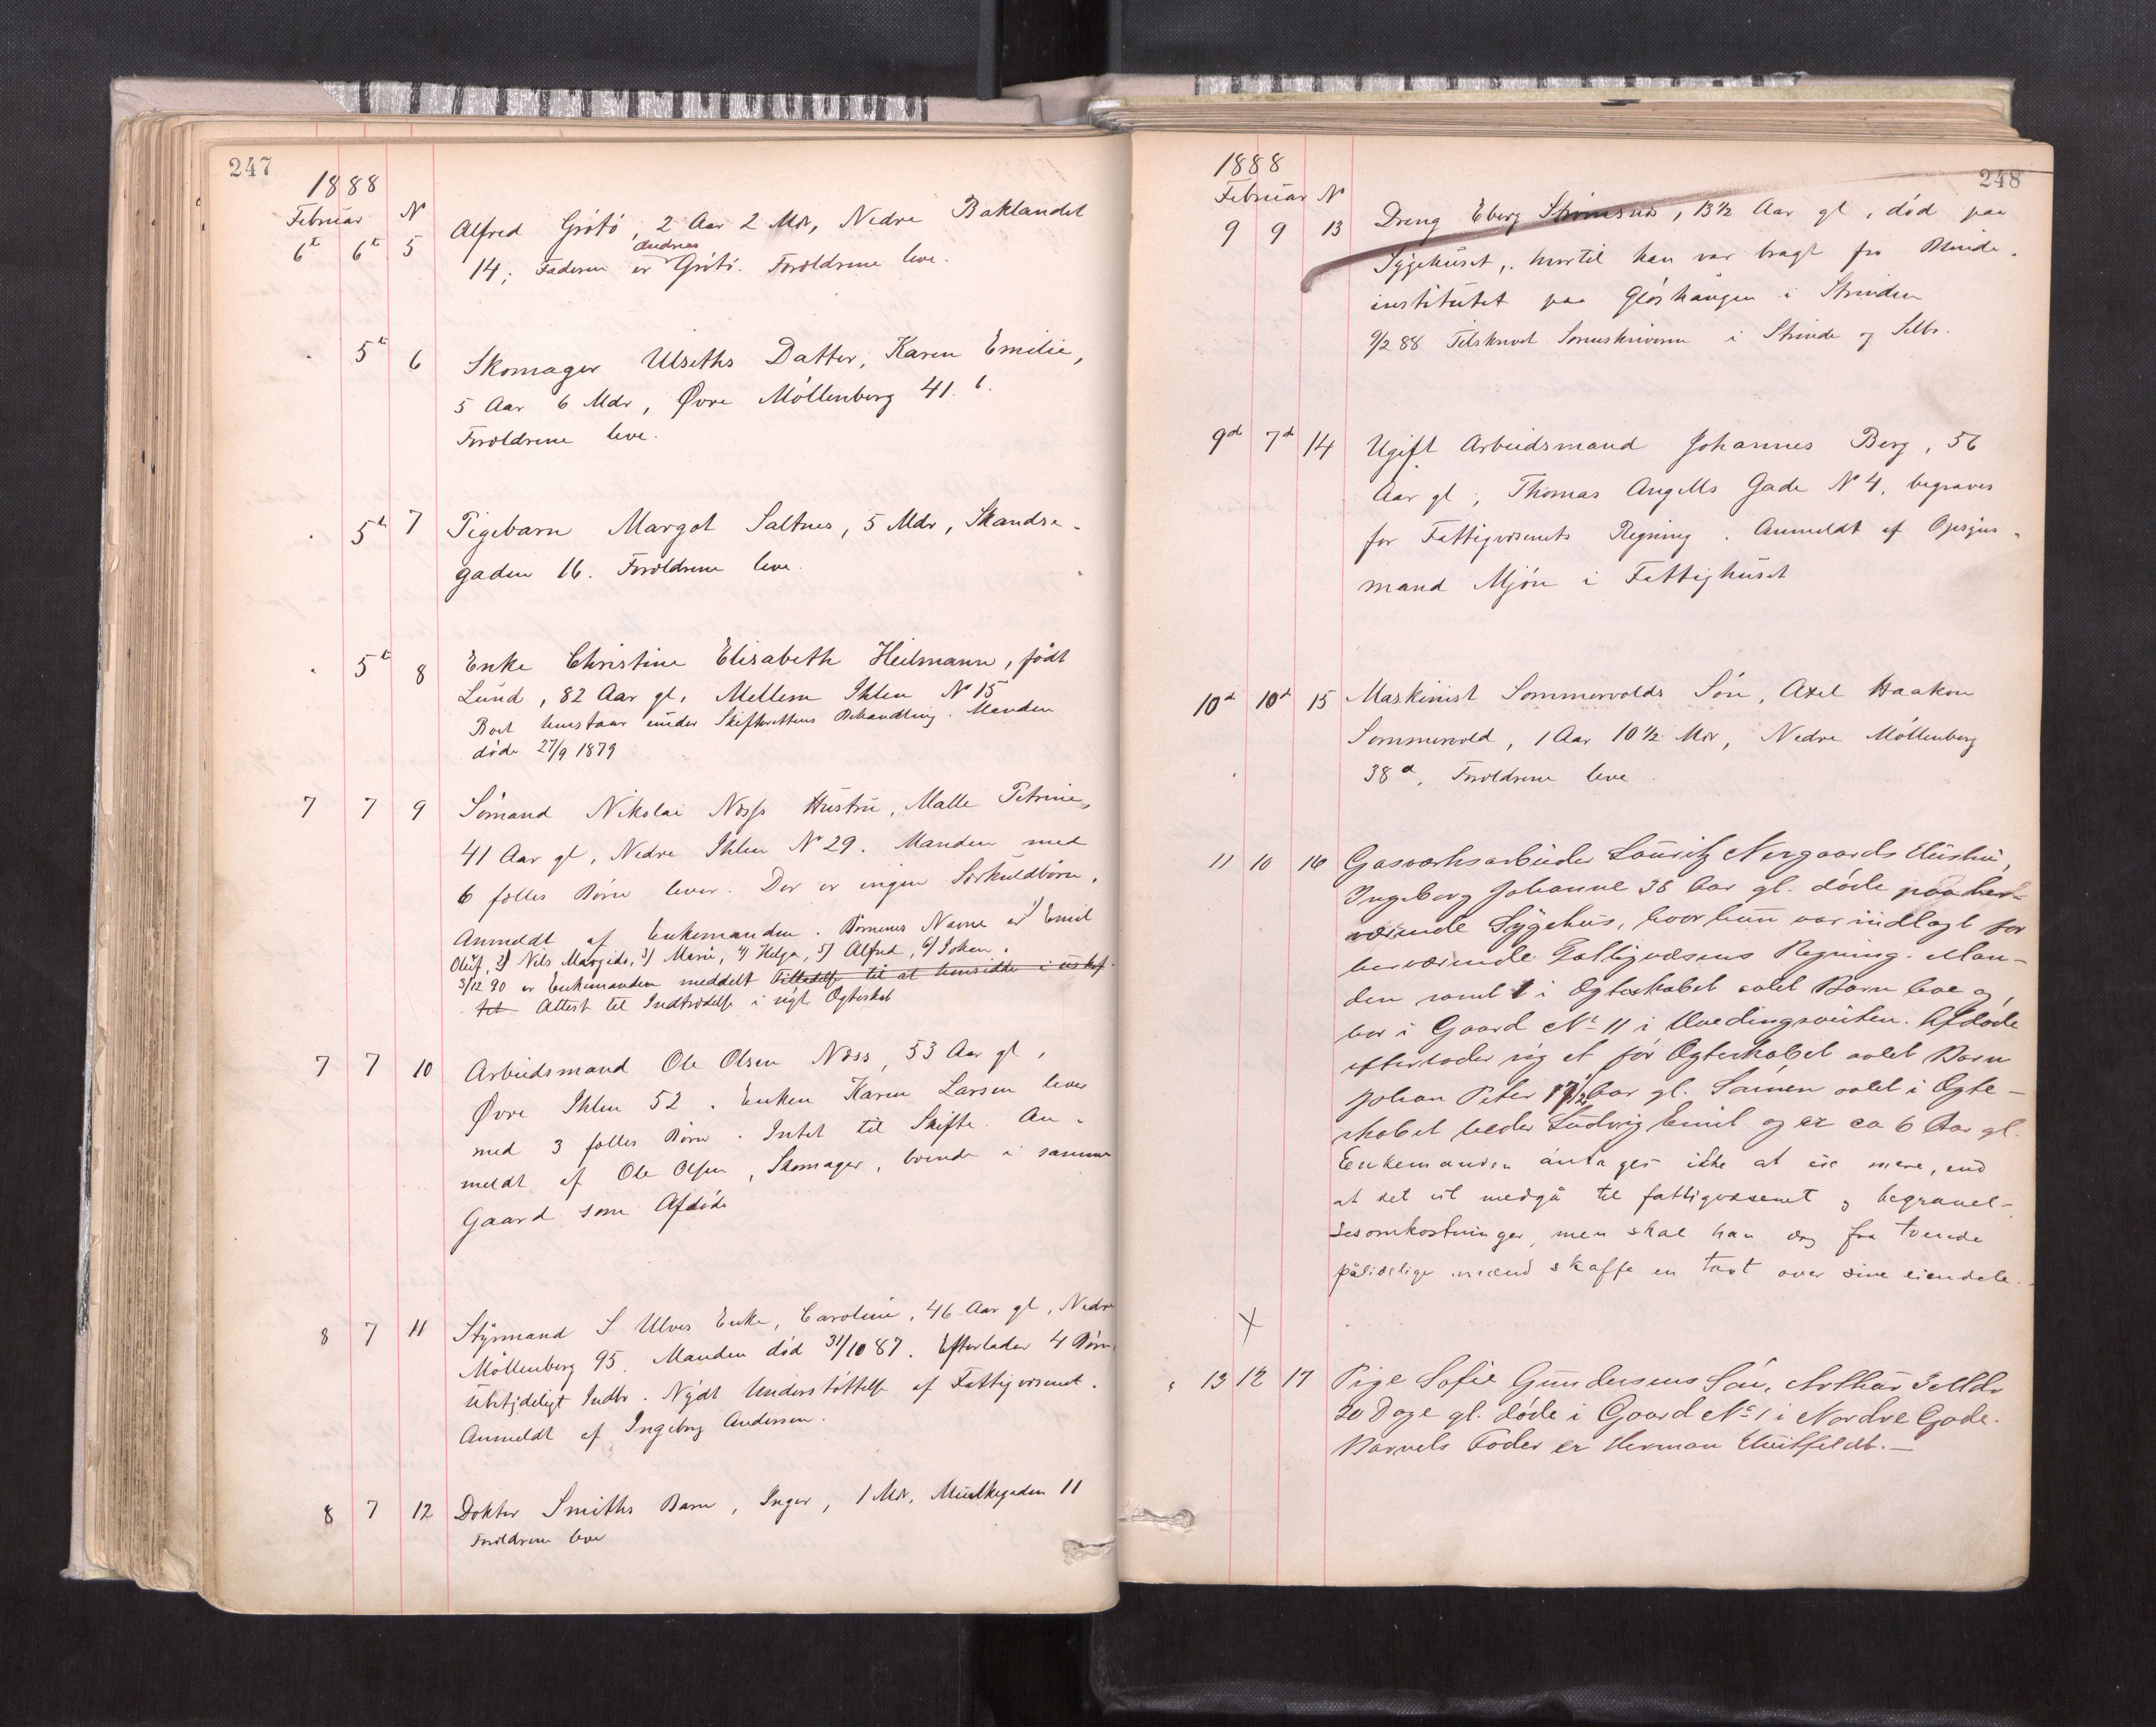 247
1888
Februar N
6t 6t 5 Alfred Grötö, 2 Aar 2 Mdr, Nedre Baklandet
14; Faderen er Andreas Grötö. Forældrene leve.
" 5t 6 Skomager Ulseths Datter, Karen Emilie,
5 Aar 6 Mdr, Øvre Möllenberg 41.b.
Forældrene leve.
" 5t 7 Pigebarn Margot Saltnes, 5 Mdr, Skandse-
gaden 16. Forældrene leve.
" 5t 8 Enke Christine Elisabeth Heilmann, född
Lund, 82 Aar gl, Mellem Ihlen No 15
Boet henstaar under Skifterettens Behandling. Manden
döde 27/9 1879
7 7 9 Sömand Nikolai Næss Hustru, Malle Petrine,
41 Aar gl, Nedre Ihlen No 29. Manden med
6 fælles Börn lever. Der er ingen Særkuldbörn.
Anmeldt af Enkemanden. Börnenes Navne er 1) Emil
Oluf, 2) Nils Margido, 3) Marie, 4) Helga, 5) Alfred, 6) Johan.
3/12 90 er Enkemanden meddelt Tilladelse til at hensidde i uskif-
tet Attest til Indtrædelse i nyt Ægteskab
7 7 10 Arbeidsmand Ole Olsen Næss, 53 Aar gl,
Øvre Ihlen 52. Enken Karen Larsen lever
med 3 fælles Börn. Intet til Skifte. An-
meldt af Ole Olsen, Skomager, boende i samme
Gaard som Afdöde
8 7 11 Styrmand S Ulves Enke, Caroline, 46 Aar gl, Nedre
Möllenberg 95. Manden död 31/10 87. Efterlader 4 Börn,
ubetydeligt Indbo. Nydt Understöttelse af Fattigvæsenet.
Anmeldt af Ingeborg Andersen.
8 7 12 Doktor Smiths Barn, Inger, 1 Md, Munkegaden 11
Forældrene leve
248
1888
Februar N
9 9 13 Dreng Eberg Strömsnes, 13 1/2 Aar gl, död paa
Sygehuset, hvortil han var bragt fra Blinde-
institutet paa Glöshaugen i Strinden
9/2 88 Tilskrevet Sorenskriveren i Strinde og Selbo.
9d 7d 14 Ugift Arbeidsmand Johannes Berg, 56
Aar gl, Thomas Angells Gade No 4, begraves
for Fattigvæsenets Regning. Anmeldt af Opsyns-
mand Mjön i Fattighuset
10d 10d 15 Maskinist Sommervolds Sön, Axel Haakon
Sommervold, 1 Aar 10 1/2 Mdr, Nedre Möllenberg
38a, Forældrene leve.
11 10 16 Gasværksarbeider Lauritz Nergaards Hustru,
Ingeborg Johanne 36 Aar gl. döde paa her-
værende Sygehus, hvor hun var indlagt for
herværende Fattigvæsens Regning. Man-
den samt 1 i Ægteskabet avlet Barn leve og
bor i Gaard No 11 i Hvedingsveiten. Afdöde
efterlader sig et för Ægteskabet avlet Barn
Johan Peter 17 1/2 Aar gl. Sönnen avlet i Ægte-
skabet heder Ludvig Emil og er ca 6 Aar gl.
Enkemanden antages ikke at eie mere, end
at det vil medgå til fattigvæsenet og begravel-
sesomkostninger, men skal han dog fra tvende
pålidelige mænd skaffe en taxt over sine eiendele.
X
" 13 12 17 Pige Sofie Gundersens Sön, Arthur 3 Mdr
20 Dage gl. döde i Gaard No 1 i Nordre Gade.
Barnets Fader er Herman Huitfeldt.